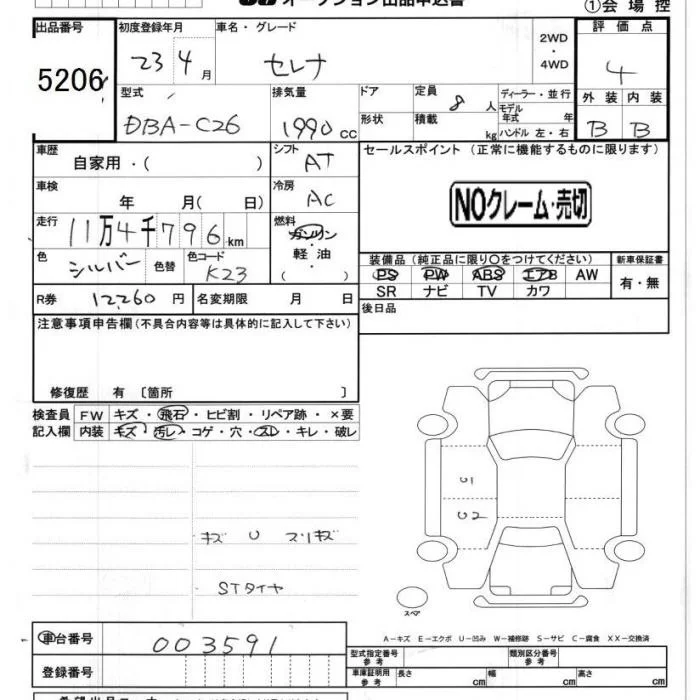 オークション出品申込書 ①会場控
出品番号 初度登録年月 車名・グレード 2WD・4WD 評価点
5206 23 4月 セレナ 4
型式 排気量 ドア 定員 8人 ディーラー・並行 外装 内装
DBA-C26 1990cc 形状 積載 kg モデル年式 年 ハンドル 左・右 B B
車歴 自家用・( ) シフト AT セールスポイント (正常に機能するものに限ります)
車検 年 月(日) 冷房 AC NOクレーム・売切
走行 11万4千796km 燃料 ガソリン・軽油・( )
色 シルバー 色替 色コード K23 装備品(純正品に限り○をつけてください) 新車保証書
PS PW ABS エアB AW 有・無
R券 12,260円 名変期限 月 日 SR ナビ TV カワ
後日品
注意事項申告欄(不具合内容等は具体的に記入して下さい)
修復歴 有 〔箇所 〕
検査員 FW キズ・飛石・ヒビ割・リペア跡・×要
記入欄 内装 キズ・汚レ・コゲ・穴・スレ・キレ・破レ
キズ U スリキズ
STタイヤ
スペア
A-キズ E-エクボ U-凹み W-補修跡 S-サビ C-腐食 XX-交換済
車台番号 003591 型式指定番号 参考 類別区分番号 参考
登録番号 車庫証明用 参考 長さ cm 幅 cm 高さ cm